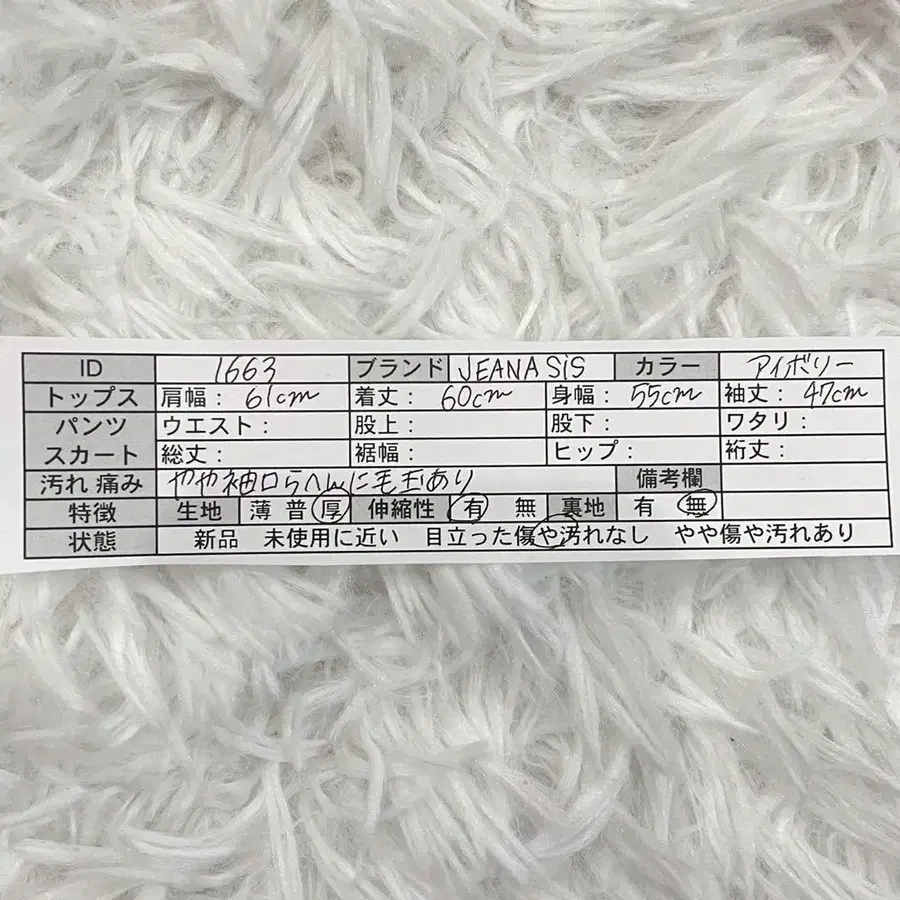 ID 1663 ブランド JEANASiS カラー アイボリー
トップス 肩幅： 61cm 着丈： 60cm 身幅： 55cm 袖丈： 47cm
パンツ ウエスト： 股上： 股下： ワタリ：
スカート 総丈： 裾幅： ヒップ： 裄丈：
汚れ 痛み やや袖口らへんに毛玉あり 備考欄
特徴 生地 薄 普 厚 伸縮性 有 無 裏地 有 無
状態 新品 未使用に近い 目立った傷や汚れなし やや傷や汚れあり